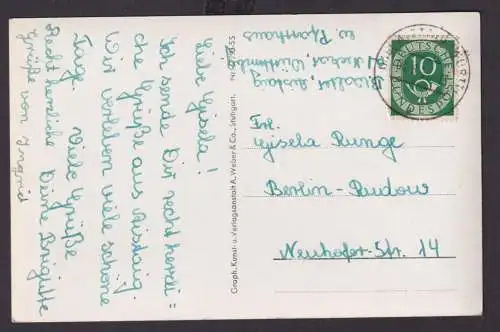 Liebe Gisela!
Ich sende Dir recht herzli=
che Grüße aus Aistaig.
Wir verleben viele schöne
Tage. Viele Grüße
Deine Brigitte
Recht herzliche
Grüße von Ingrid
ev. Pfarrhaus
Graph. Kunst- u. Verlagsanstalt A. Weber & Co., Stuttgart.
Nr.
DEUTSCHE
10
BUNDESPOST
Frl.
Gisela Runge
Berlin-Rudow
Neuhofer-Str. 14